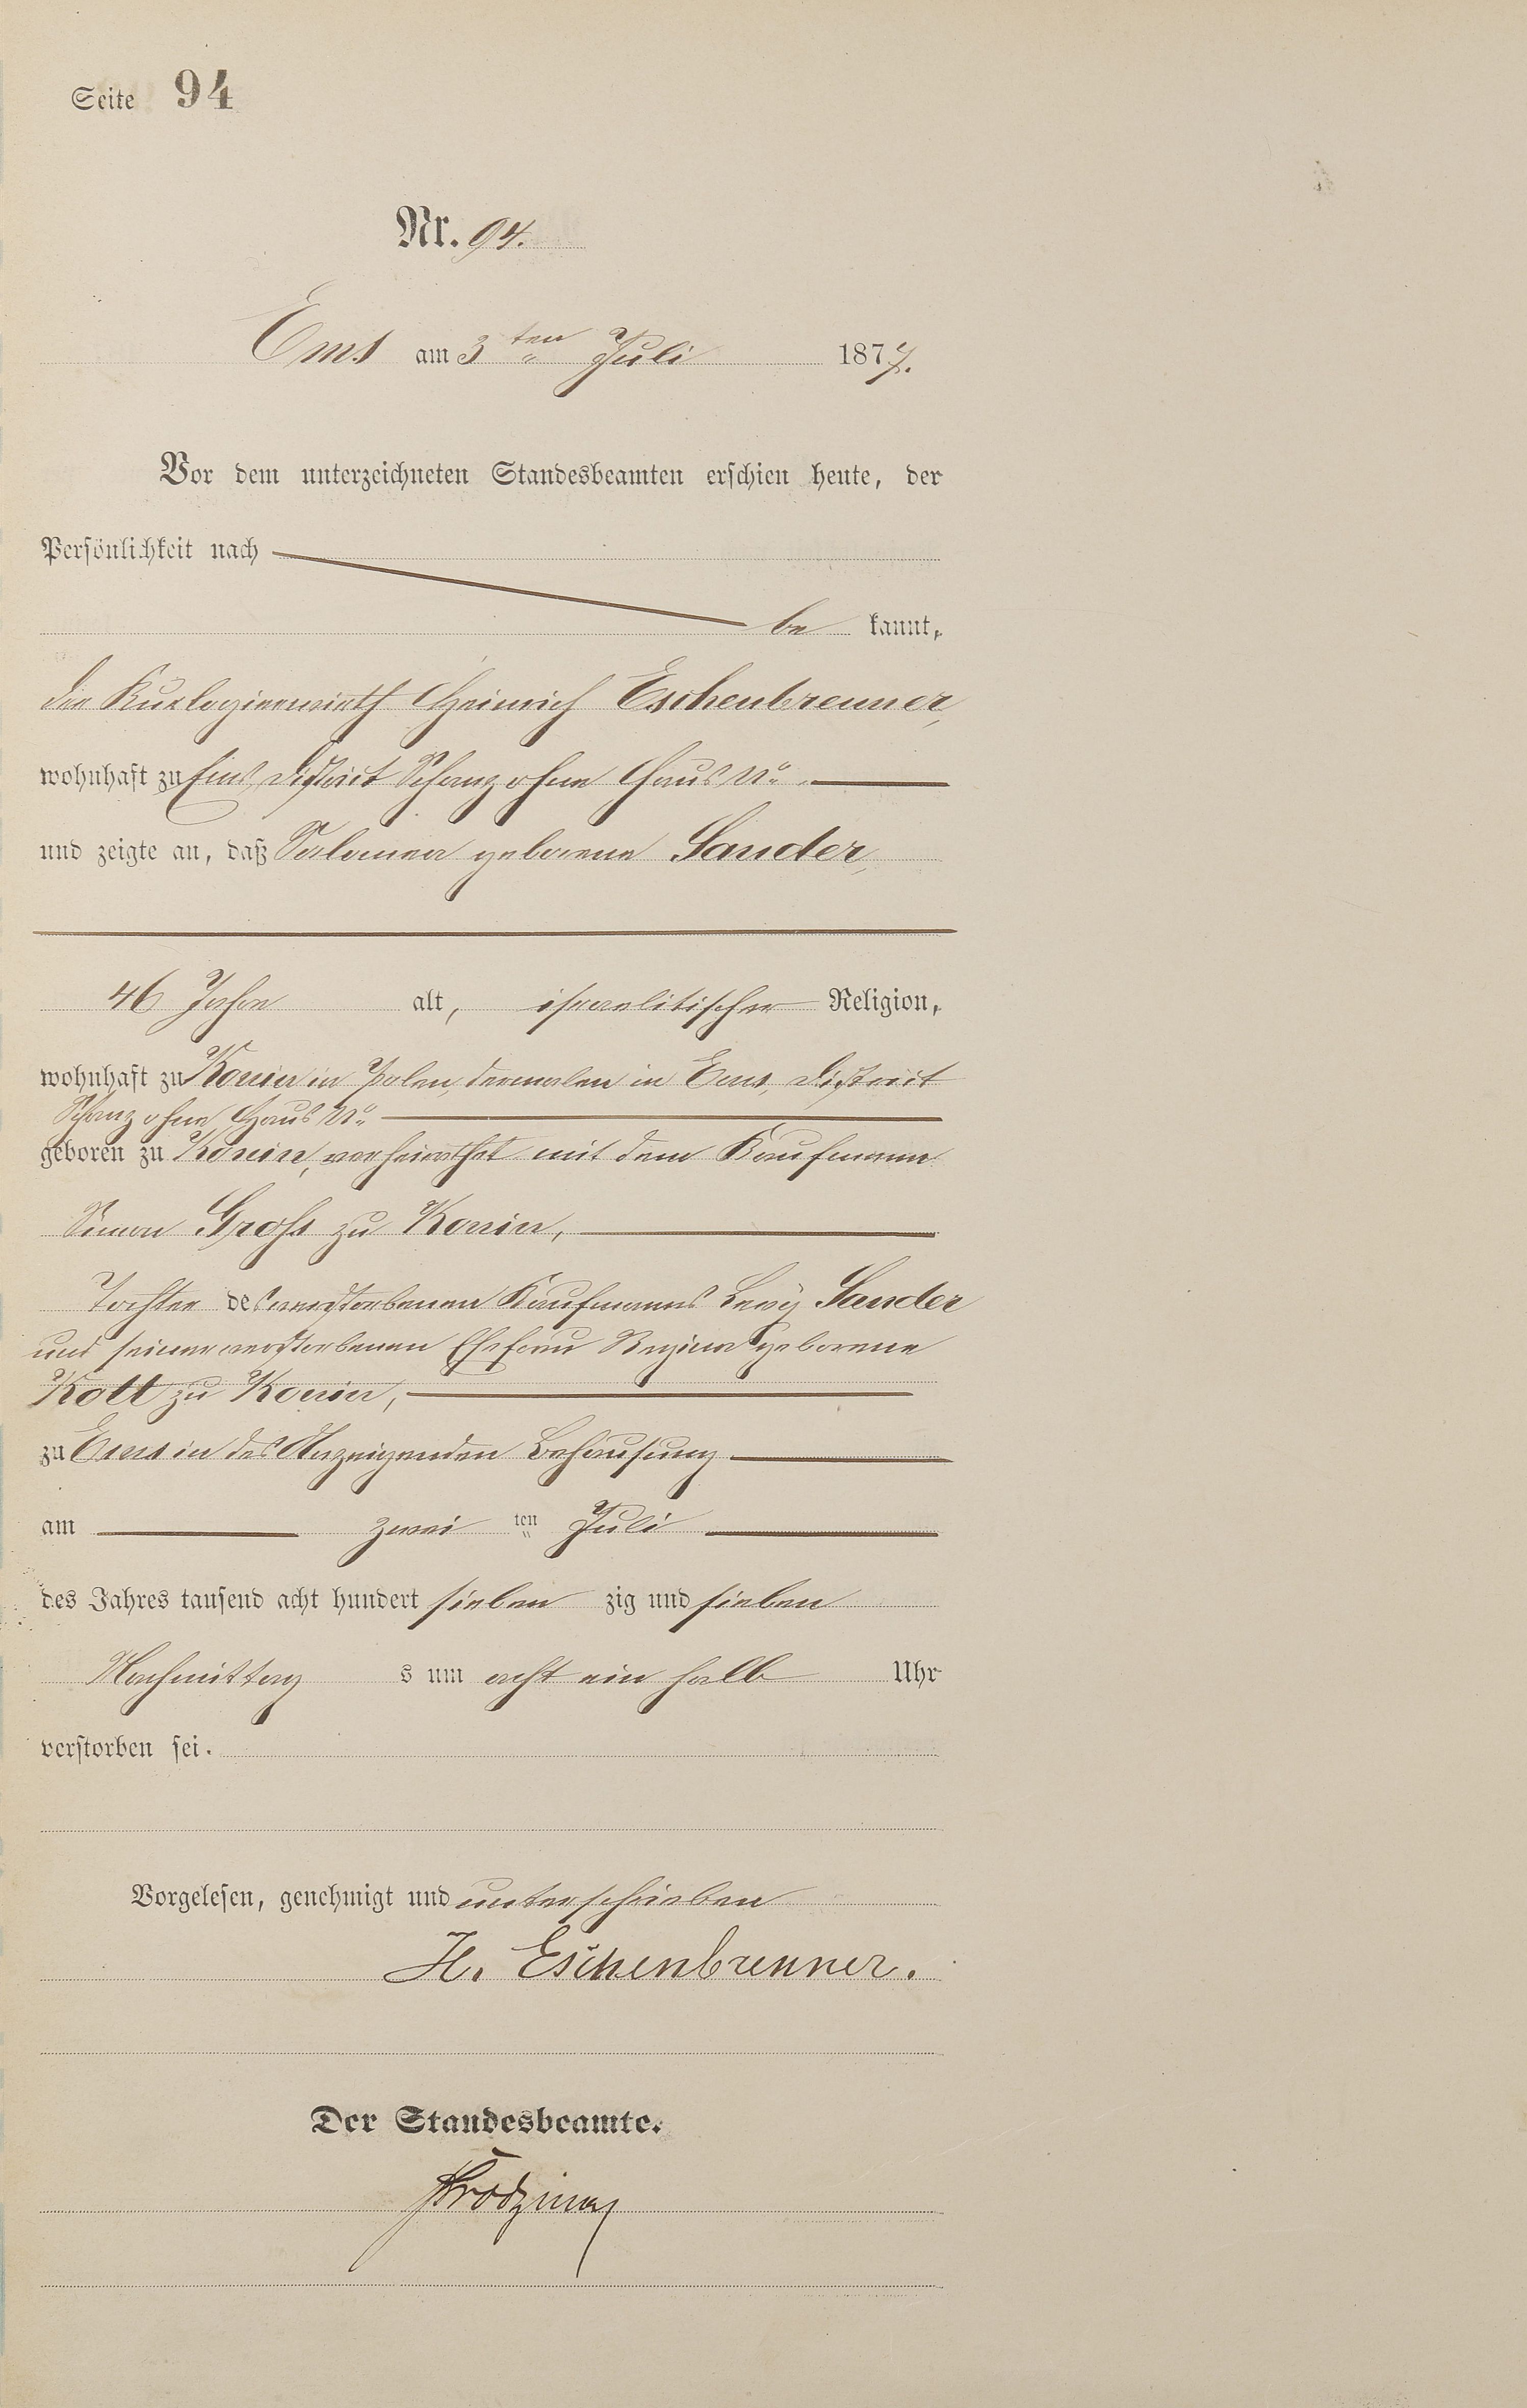 Seite 94
Nr. 94.
Ems am 3ten Juli 1877.
Vor dem unterzeichneten Standesbeamten erschien heute, der
Persönlichkeit nach
be kannt,
der Kurlogierwirth Heinrich Eschenbrenner,
wohnhaft zu Ems, District Schanz ohne Haus No.
und zeigte an, daß Salomea geborene Sander,
46 Jahre alt, israelitischer Religion,
wohnhaft zu Konin in Polen, dermalen in Ems, District
Schanz ohne Haus No.
geboren zu Konin, verheirathet mit dem Kaufmann
Simon Groß zu Konin,
Tochter des verstorbenen Kaufmanns Levy Sander
und seiner verstorbenen Ehefrau Regina geborene
Kott zu Konin,
zu Ems in des Anzeigenden Behausung
am zwei ten Juli
des Jahres tausend acht hundert sieben zig und sieben
Nachmittag s um acht ein halb Uhr
verstorben sei.
Vorgelesen, genehmigt und unterschrieben
H. Eschenbrenner.
Der Standesbeamte.